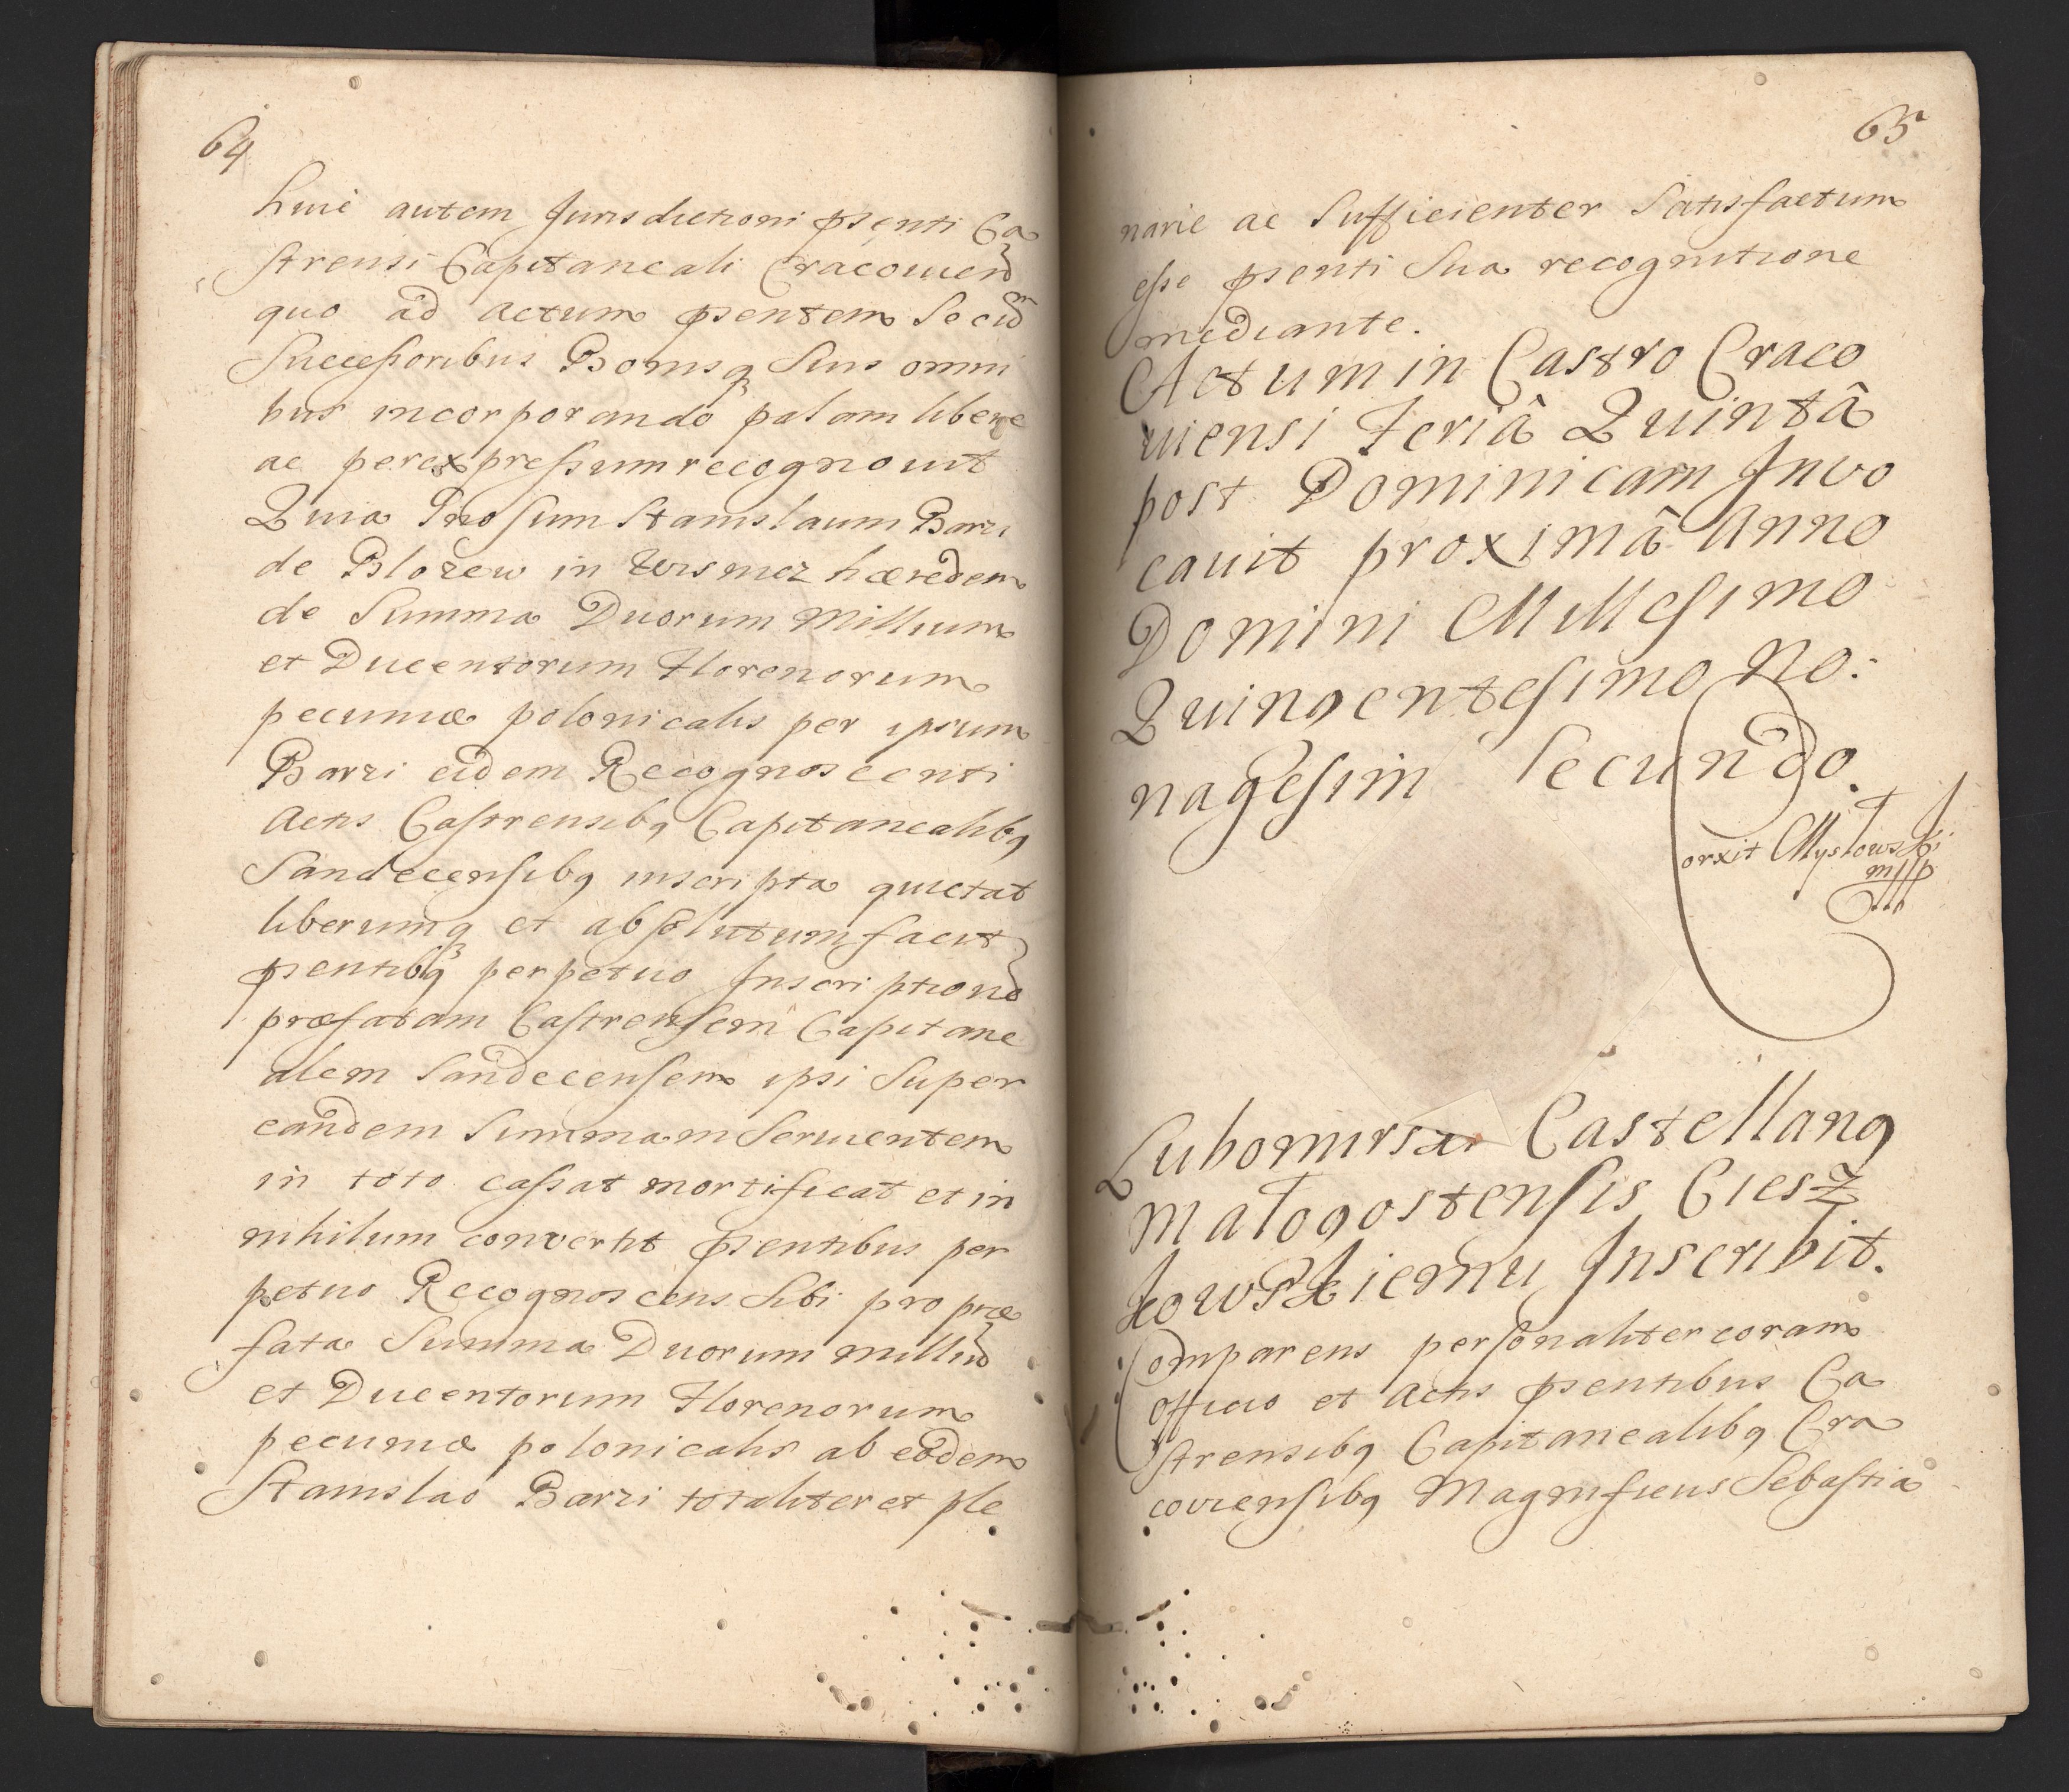 64
huic autem Jurisdictioni pñsenti Ca
strensi Capitaneali Cracouien̄
quo ad actum pñsentem Se cum
Successoribus Bonisq̃ Suis omni
bus incorporando palam libere
ac per expressum recognouit
Quia Gnosum Stanislaum Barzi
de Blozew in hæredem
de Summa Duorum Millium
et Ducentorum Florenorum
pecuniæ polonicalis per ipsum
Barzi eidem Recognoscenti
Actis Castrensibq Capitanealibq
Sandecensibq inscripta quietat
liberumq̃ et absolutum facit
pñsentibq perpetuo Inscription̄
præfatam Castrensem Capitane
alem Sandecensem ipsi Super
eandem Summam Seruientem
in toto cassat mortificat et in
nihilum convertit pñsentibus per
petuo Recognoscens Sibi pro præ
fata Summa Duorum milliū
et Ducentorum Florenorum
pecuniæ polonicalis ab eodem
Stanislao Barzi totaliter et ple
65
narie ac Sufficienter Satisfactum
esse pñsenti Sua recognitione
mediante.
Actum in Castro Craco
uiensi Feriâ Quintâ
post Dominicam Invo
cauit proximâ Anno
Domini Millesimo
Quingentesimo No:
nagesim Secundo.
orxit Mysłowski
mpp
Lubomirski Castellanq
Małogostensis Ciesz
kowskiemu Inscribit.
Comparens personaliter coram
officio et Actis pñsentibus Ca
strensibq Capitanealibq Cra
coviensibq Magnificus Sebastia